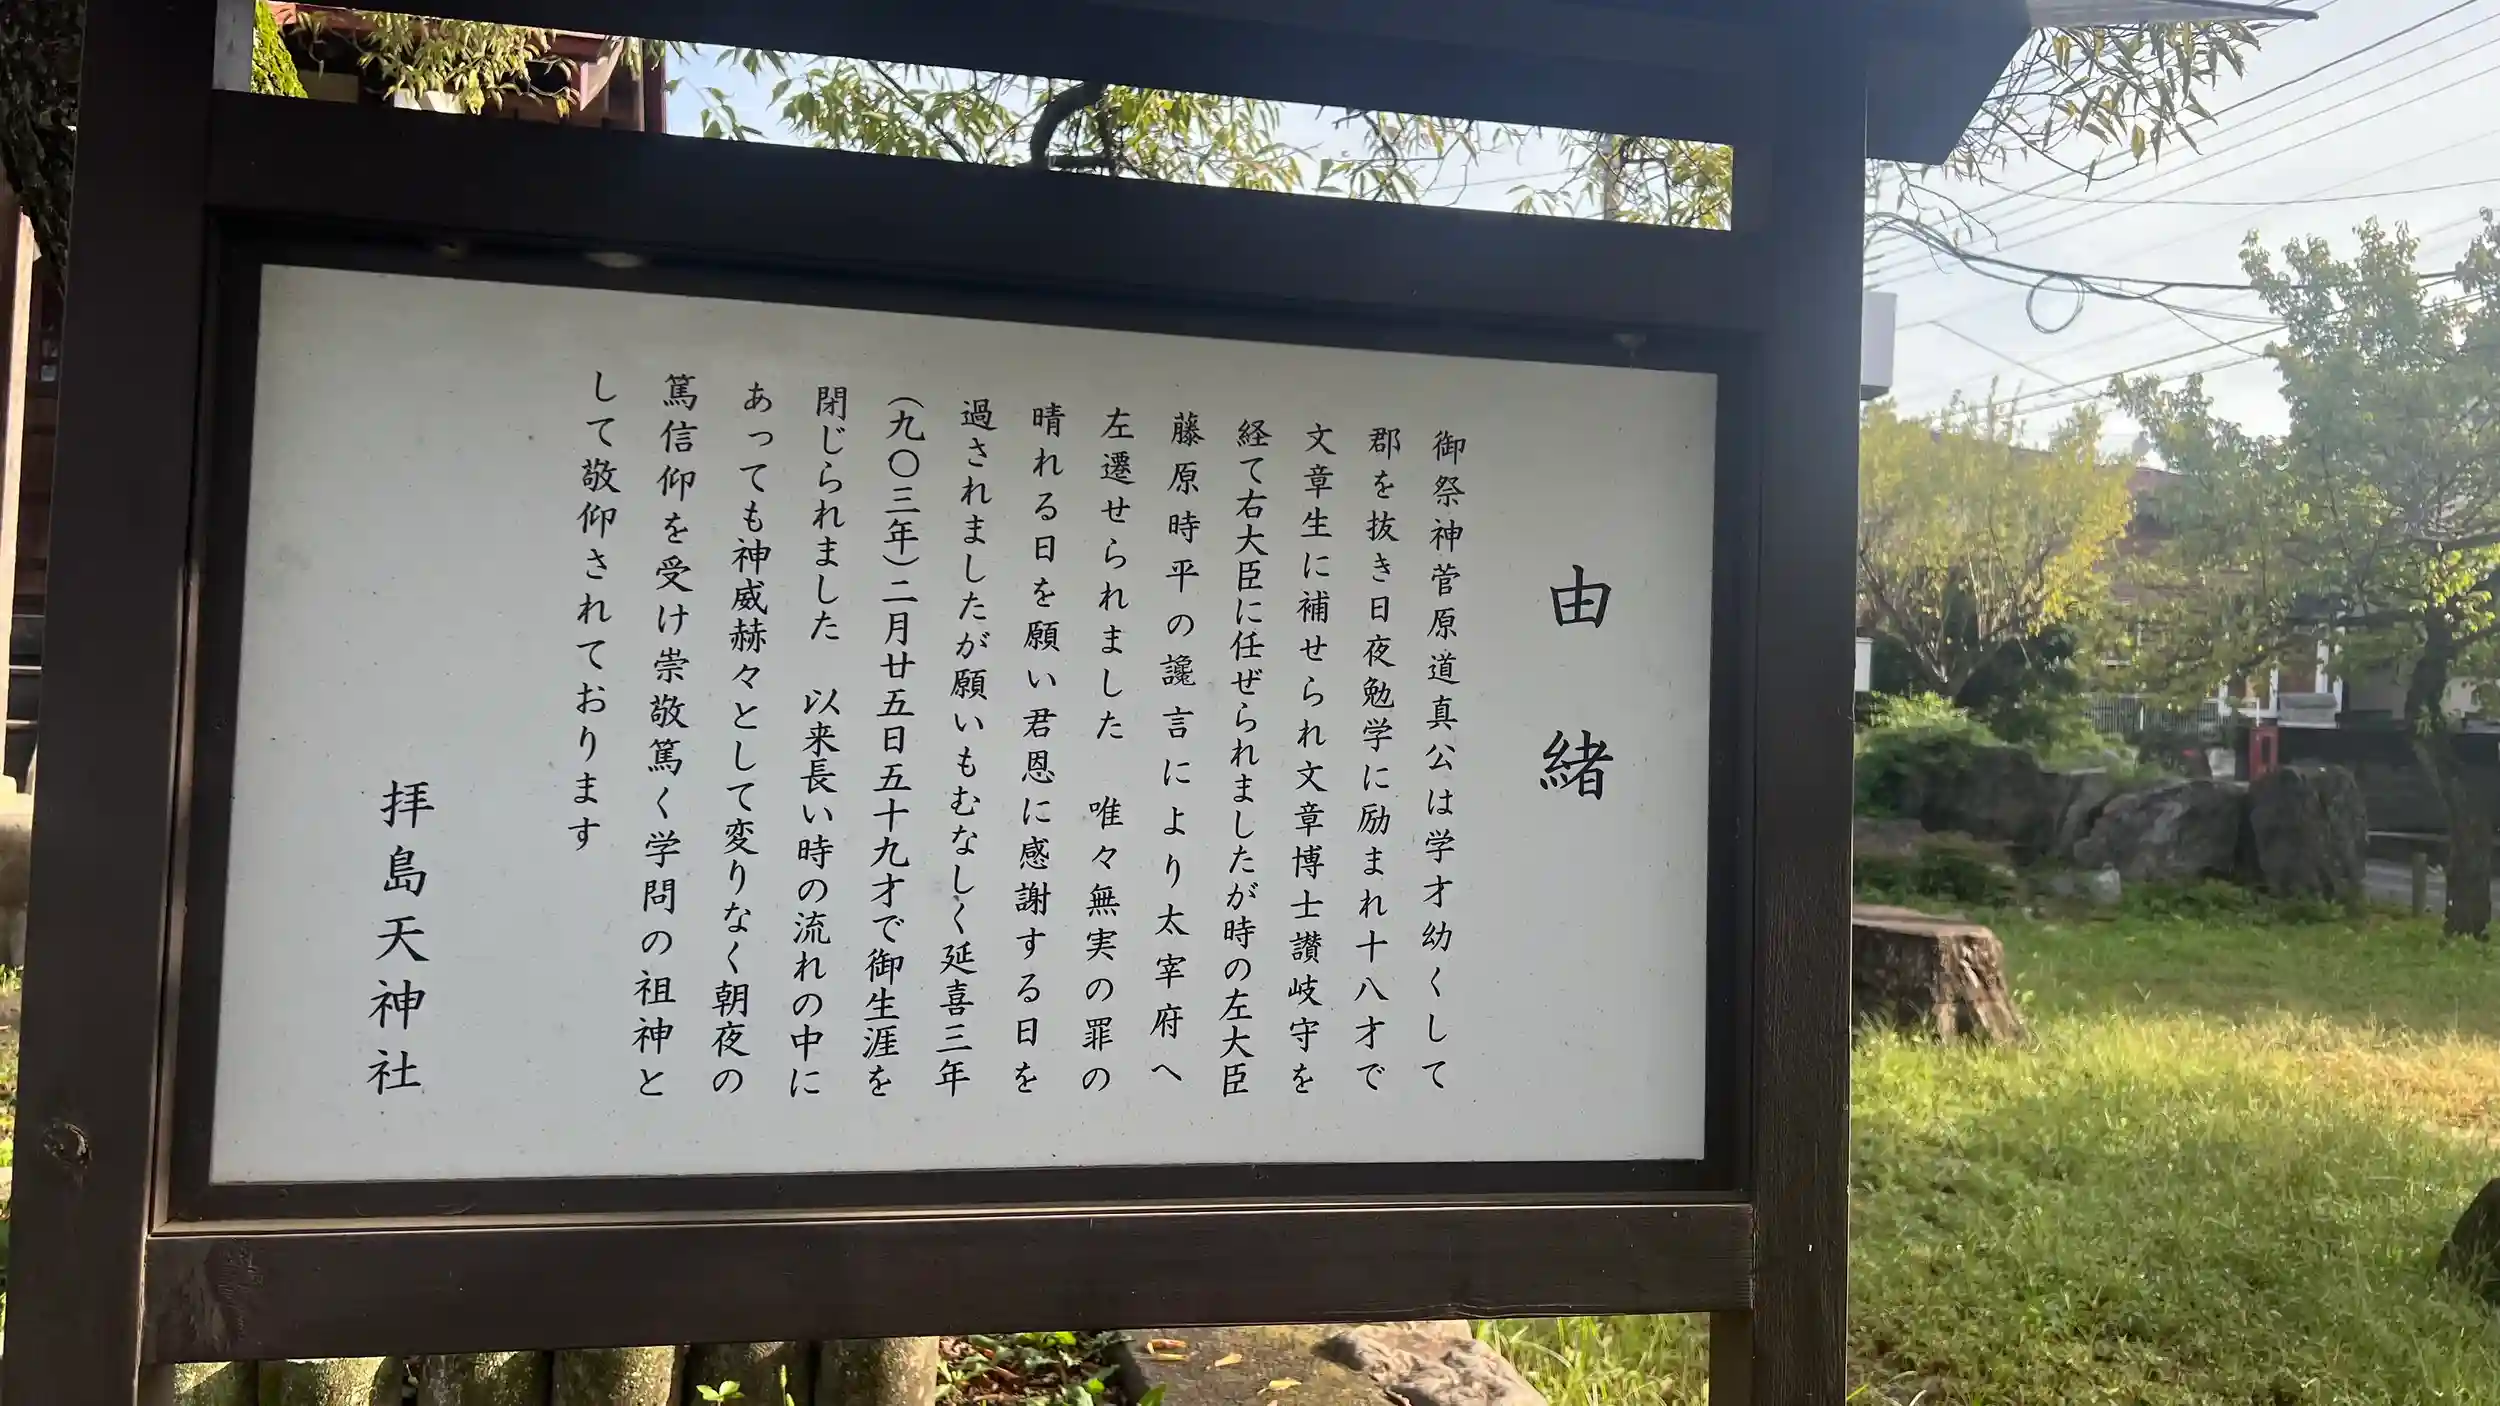 由緒
御祭神菅原道真公は学才幼くして
郡を抜き日夜勉学に励まれ十八才で
文章生に補せられ文章博士讃岐守を
経て右大臣に任ぜられましたが時の左大臣
藤原時平の讒言により太宰府へ
左遷せられました　唯々無実の罪の
晴れる日を願い君恩に感謝する日を
過されましたが願いもむなしく延喜三年
(九〇三年)二月廿五日五十九才で御生涯を
閉じられました　以来長い時の流れの中に
あっても神威赫々として変りなく朝夜の
篤信仰を受け崇敬篤く学問の祖神と
して敬仰されております
拝島天神社